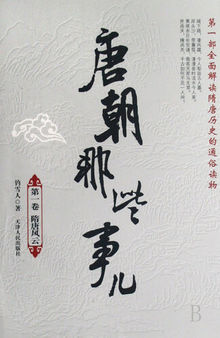 第一部全面解读隋唐历史的通俗读物
唐朝那些事儿
第一卷 隋唐风云
钓雪人 著
天津人民出版社
B